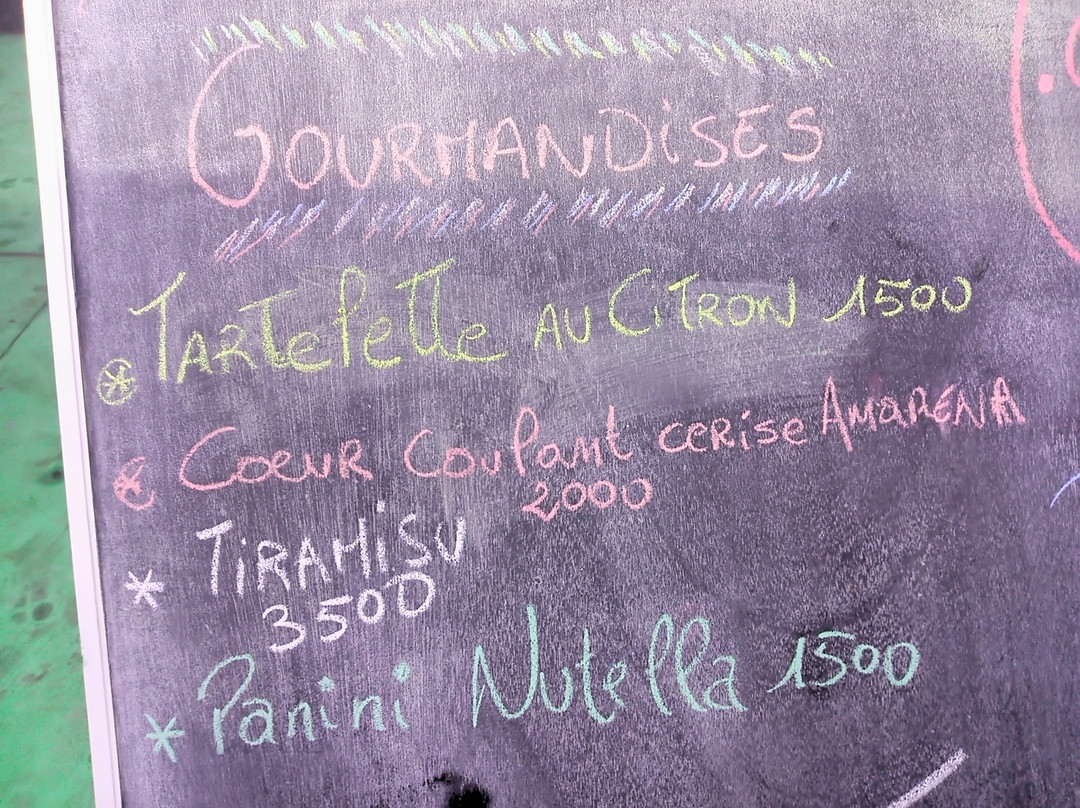 GOURMANDiSES
TARTeleTTe AU CiTRON 1500
COEUR Coulant ceRise AmaRENA
2000
TiRAMiSU
3500
Panini Nutella 1500